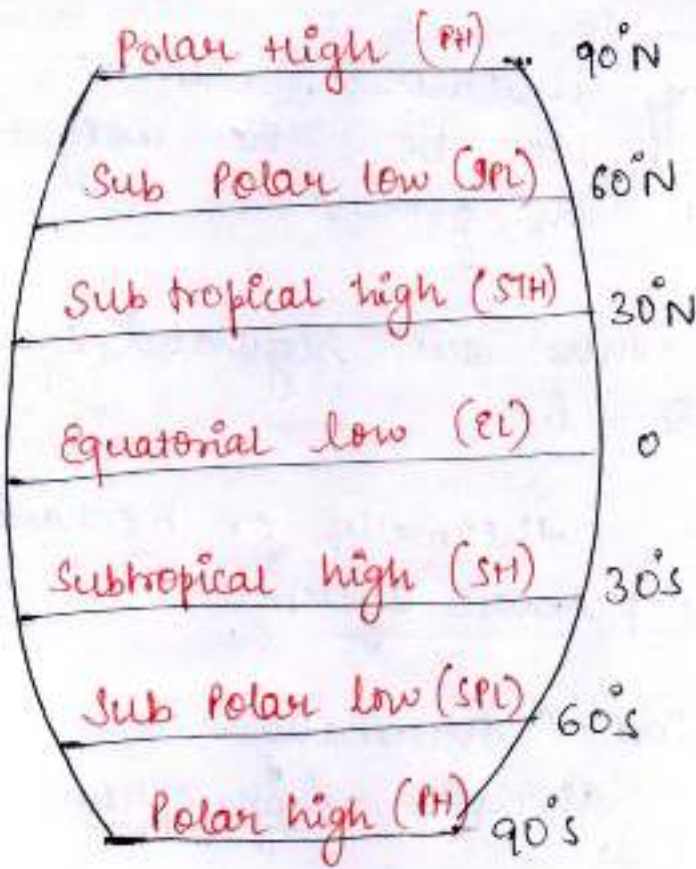 Polar High (PH) 90°N
Sub Polar low (SPL) 60°N
Sub tropical high (STH) 30°N
Equatorial low (EL) 0
Subtropical high (SH) 30°S
Sub Polar low (SPL) 60°S
Polar high (PH) 90°S